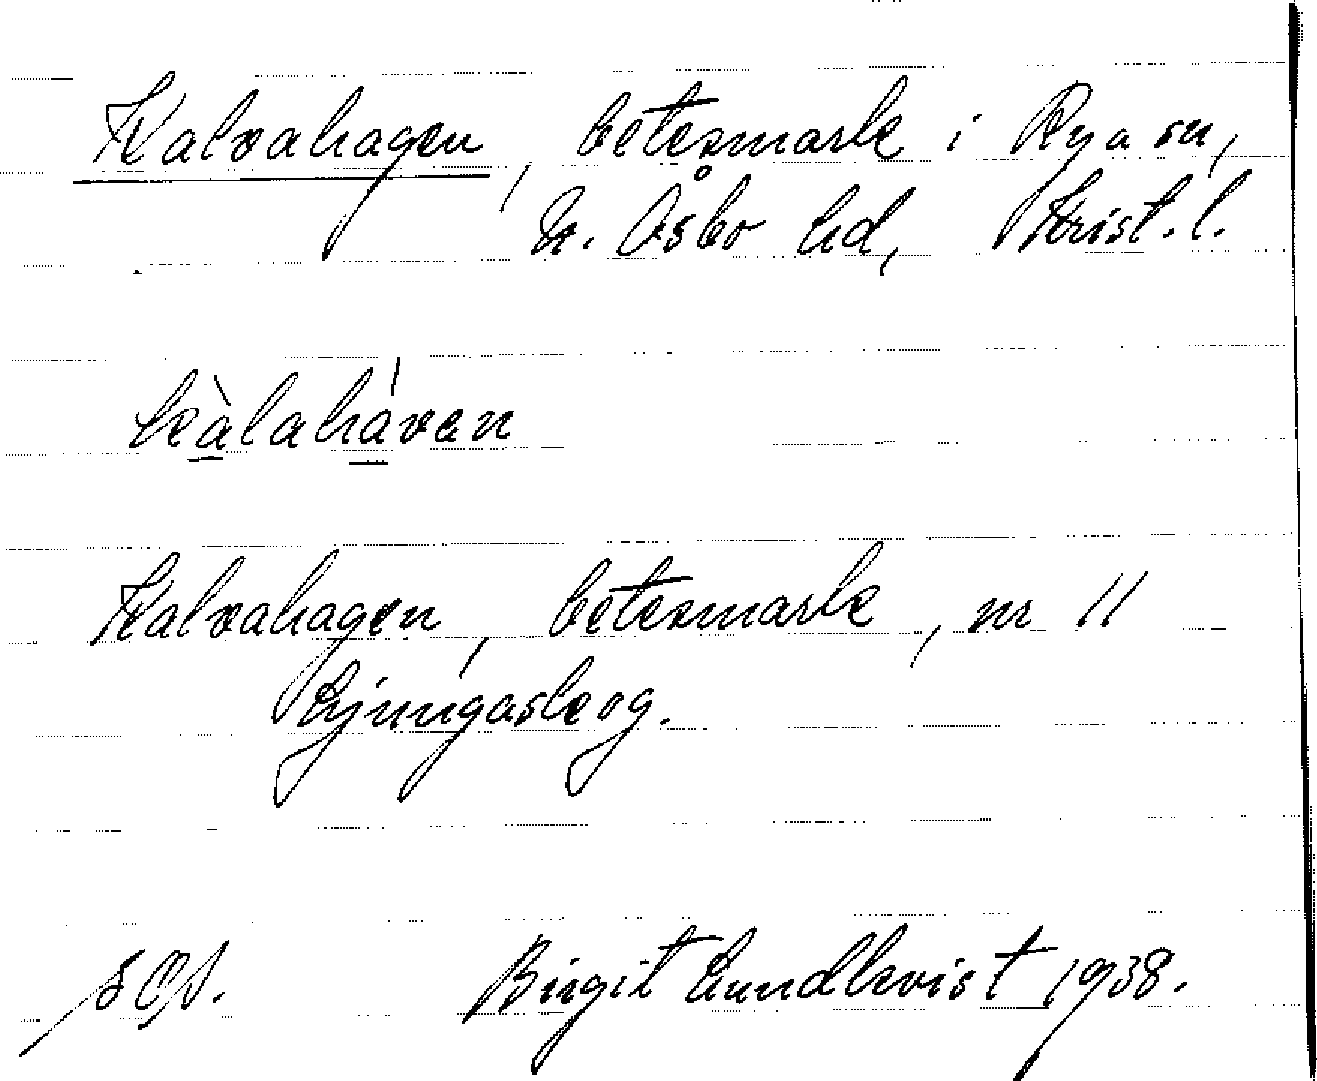 Kalvahagen, betesmark i Rya sn,
N. Åsbo hd, Krist. l.
kàlahávan
Kalvahagen, betesmark, nr 11
Ljungaskog.
Birgit Lundkvist 1938.